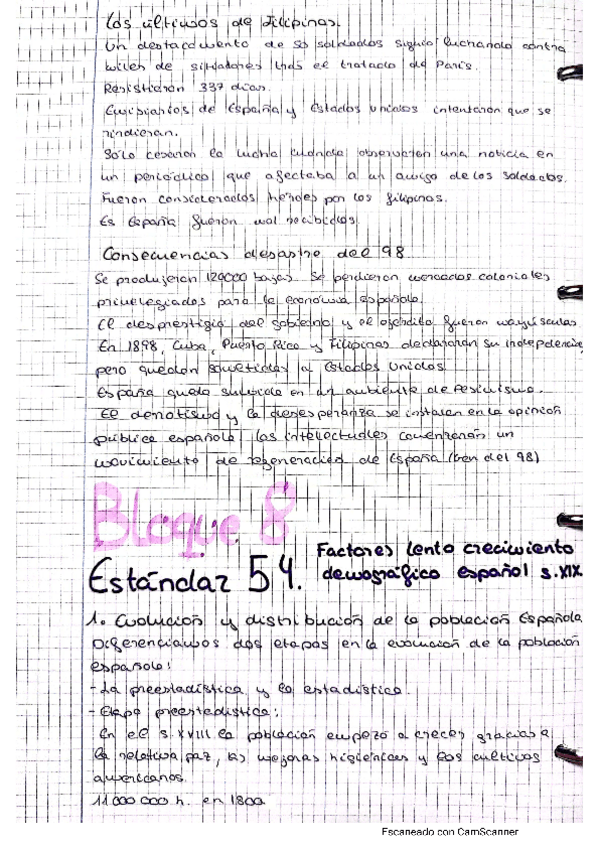 Los últimos de Filipinas.
Un destacamento de 50 soldados siguió luchando contra
miles de sitiadores tras el tratado de París.
Resistieron 337 días.
Emisiarios de España y Estados Unidos intentaron que se
rindieran.
Sólo cesaron la lucha cuando observaron una noticia en
un periódico que afectaba a un amigo de los soldados.
Fueron considerados héroes por los filipinos.
Es España fueron mal recibidos.
Consecuencias desastre del 98
Se produjeron 120000 bajas. Se perdieron mercados coloniales
privilegiados para la economía española.
El desprestigio del gobierno y el ejército fueron mayúsculas
En 1898, Cuba, Puerto Rico y Filipinas declararon su independencia,
pero quedan sometidas a Estados Unidos.
España queda sumida en un ambiente de pesimismo.
El derrotismo y la desesperanza se instalan en la opinión
pública española, los intelectuales comenzaron un
movimiento de regeneración de España (Gen del 98)
Bloque 8
Estándar 54. Factores lento crecimiento
demográfico español s.XIX
1. Evolución y distribución de la población Española
Diferenciamos dos etapas en la evolución de la población
española:
- La preestadística y la estadística.
- Etapa preestadística:
En el s.XVIII la población empezó a crecer gracias a
la relativa paz, las mejoras higiénicas y los cultivos
americanos.
11 000 000 h. en 1800
Escaneado con CamScanner